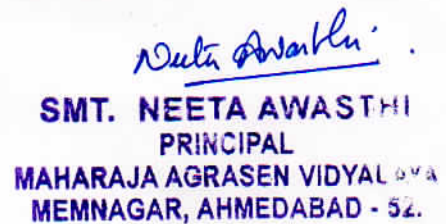 Neeta Awasthi.
SMT. NEETA AWASTHI
PRINCIPAL
MAHARAJA AGRASEN VIDYALAYA
MEMNAGAR, AHMEDABAD - 52.